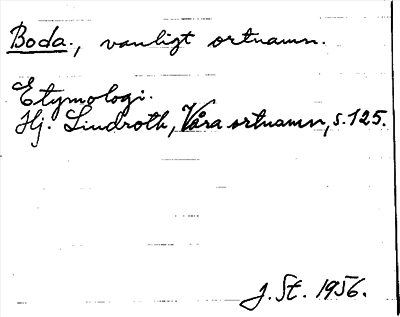 Boda., vanligt ortnamn.
Etymologi.
Hj. Lindroth, Våra ortnamn, s. 125.
J. St. 1956.